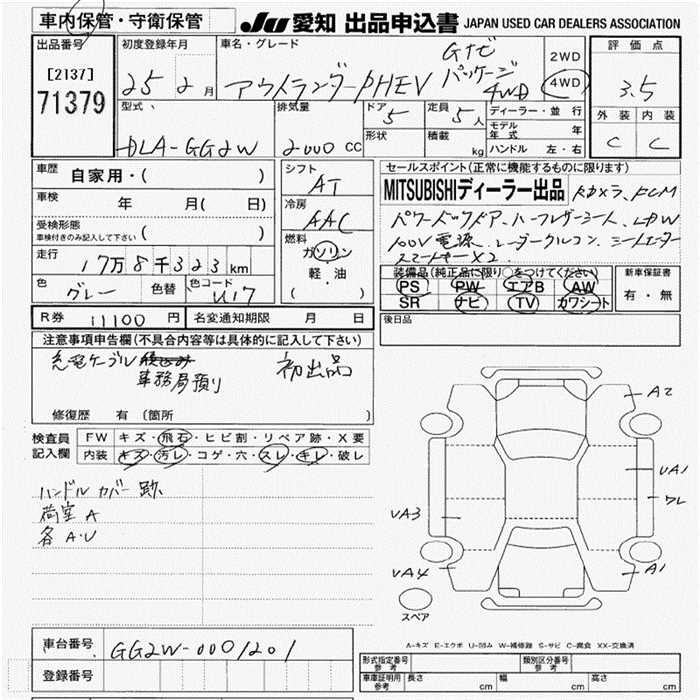 車内保管・守衛保管
JU 愛知 出品申込書 JAPAN USED CAR DEALERS ASSOCIATION
出品番号
[2137]
71379
初度登録年月
25 2月
車名・グレード
アウトランダーPHEV
Gナビ
パッケージ
4WD
2WD
4WD
評価点
3.5
外装 内装
C C
型式
DLA-GG2W
排気量
2000 CC
ドア 5
形状
定員 5人
積載 kg
ディーラー・並行
モデル年式 年
ハンドル 左・右
車歴 自家用・( )
車検 年 月( 日)
受検形態
車検付きのみ記入して下さい ( )
走行 17万8千323km
色 グレー 色替 色コード U17
シフト
AT
冷房
AAC
燃料
ガソリン
軽・油
( )
セールスポイント(正常に機能するものに限ります)
MITSUBISHIディーラー出品 Rカメラ、FCM
パワーバックドア、ハーフレザーシート、LDW
100V電源、レーダークルコン、シートヒーター
スマートキー×2
装備品(純正品に限り○をつけてください)
PS PW エアB AW
SR ナビ TV カワシート
新車保証書
有・無
R券 11100円 名変通知期限 月 日
後日品
注意事項申告欄(不具合内容等は具体的に記入して下さい)
充電ケーブル
事務局預り
初出品
修復歴 有 (箇所 )
検査員記入欄
FW キズ・飛石・ヒビ割・リペア跡・X要
内装 キズ・汚レ・コゲ・穴・スレ・キレ・破レ
ハンドル カバー跡
荷室 A
各 A・U
A2
UA1
ワレ
UA3
UA4
A1
スペア
A-キズ E-エクボ U-凹み W-補修跡 S-サビ C-腐食 XX-交換済
車台番号 GG2W-0001201
登録番号
形式指定番号 参考
類別区分番号 参考
車庫証明用 参考 長さ cm 幅 cm 高さ cm